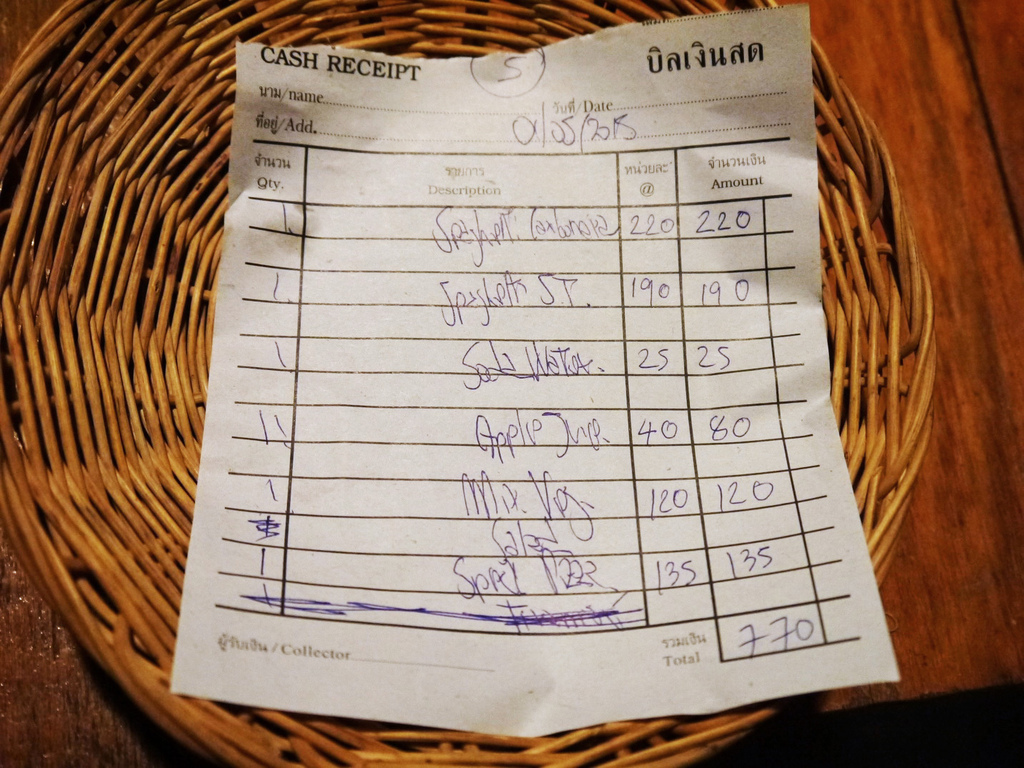 CASH RECEIPT 5 บิลเงินสด
นาม/name วันที่/Date
ที่อยู่/Add. 01/05/2015
จำนวน รายการ หน่วยละ จำนวนเงิน
Qty. Description @ Amount
1 Spaghetti Carbonara 220 220
1 Spaghetti S.T. 190 190
1 Soda Water 25 25
11 Apple Juice 40 80
1 Mix Veg. 120 120
Salad
1 135 135
ผู้รับเงิน / Collector รวมเงิน 770
Total